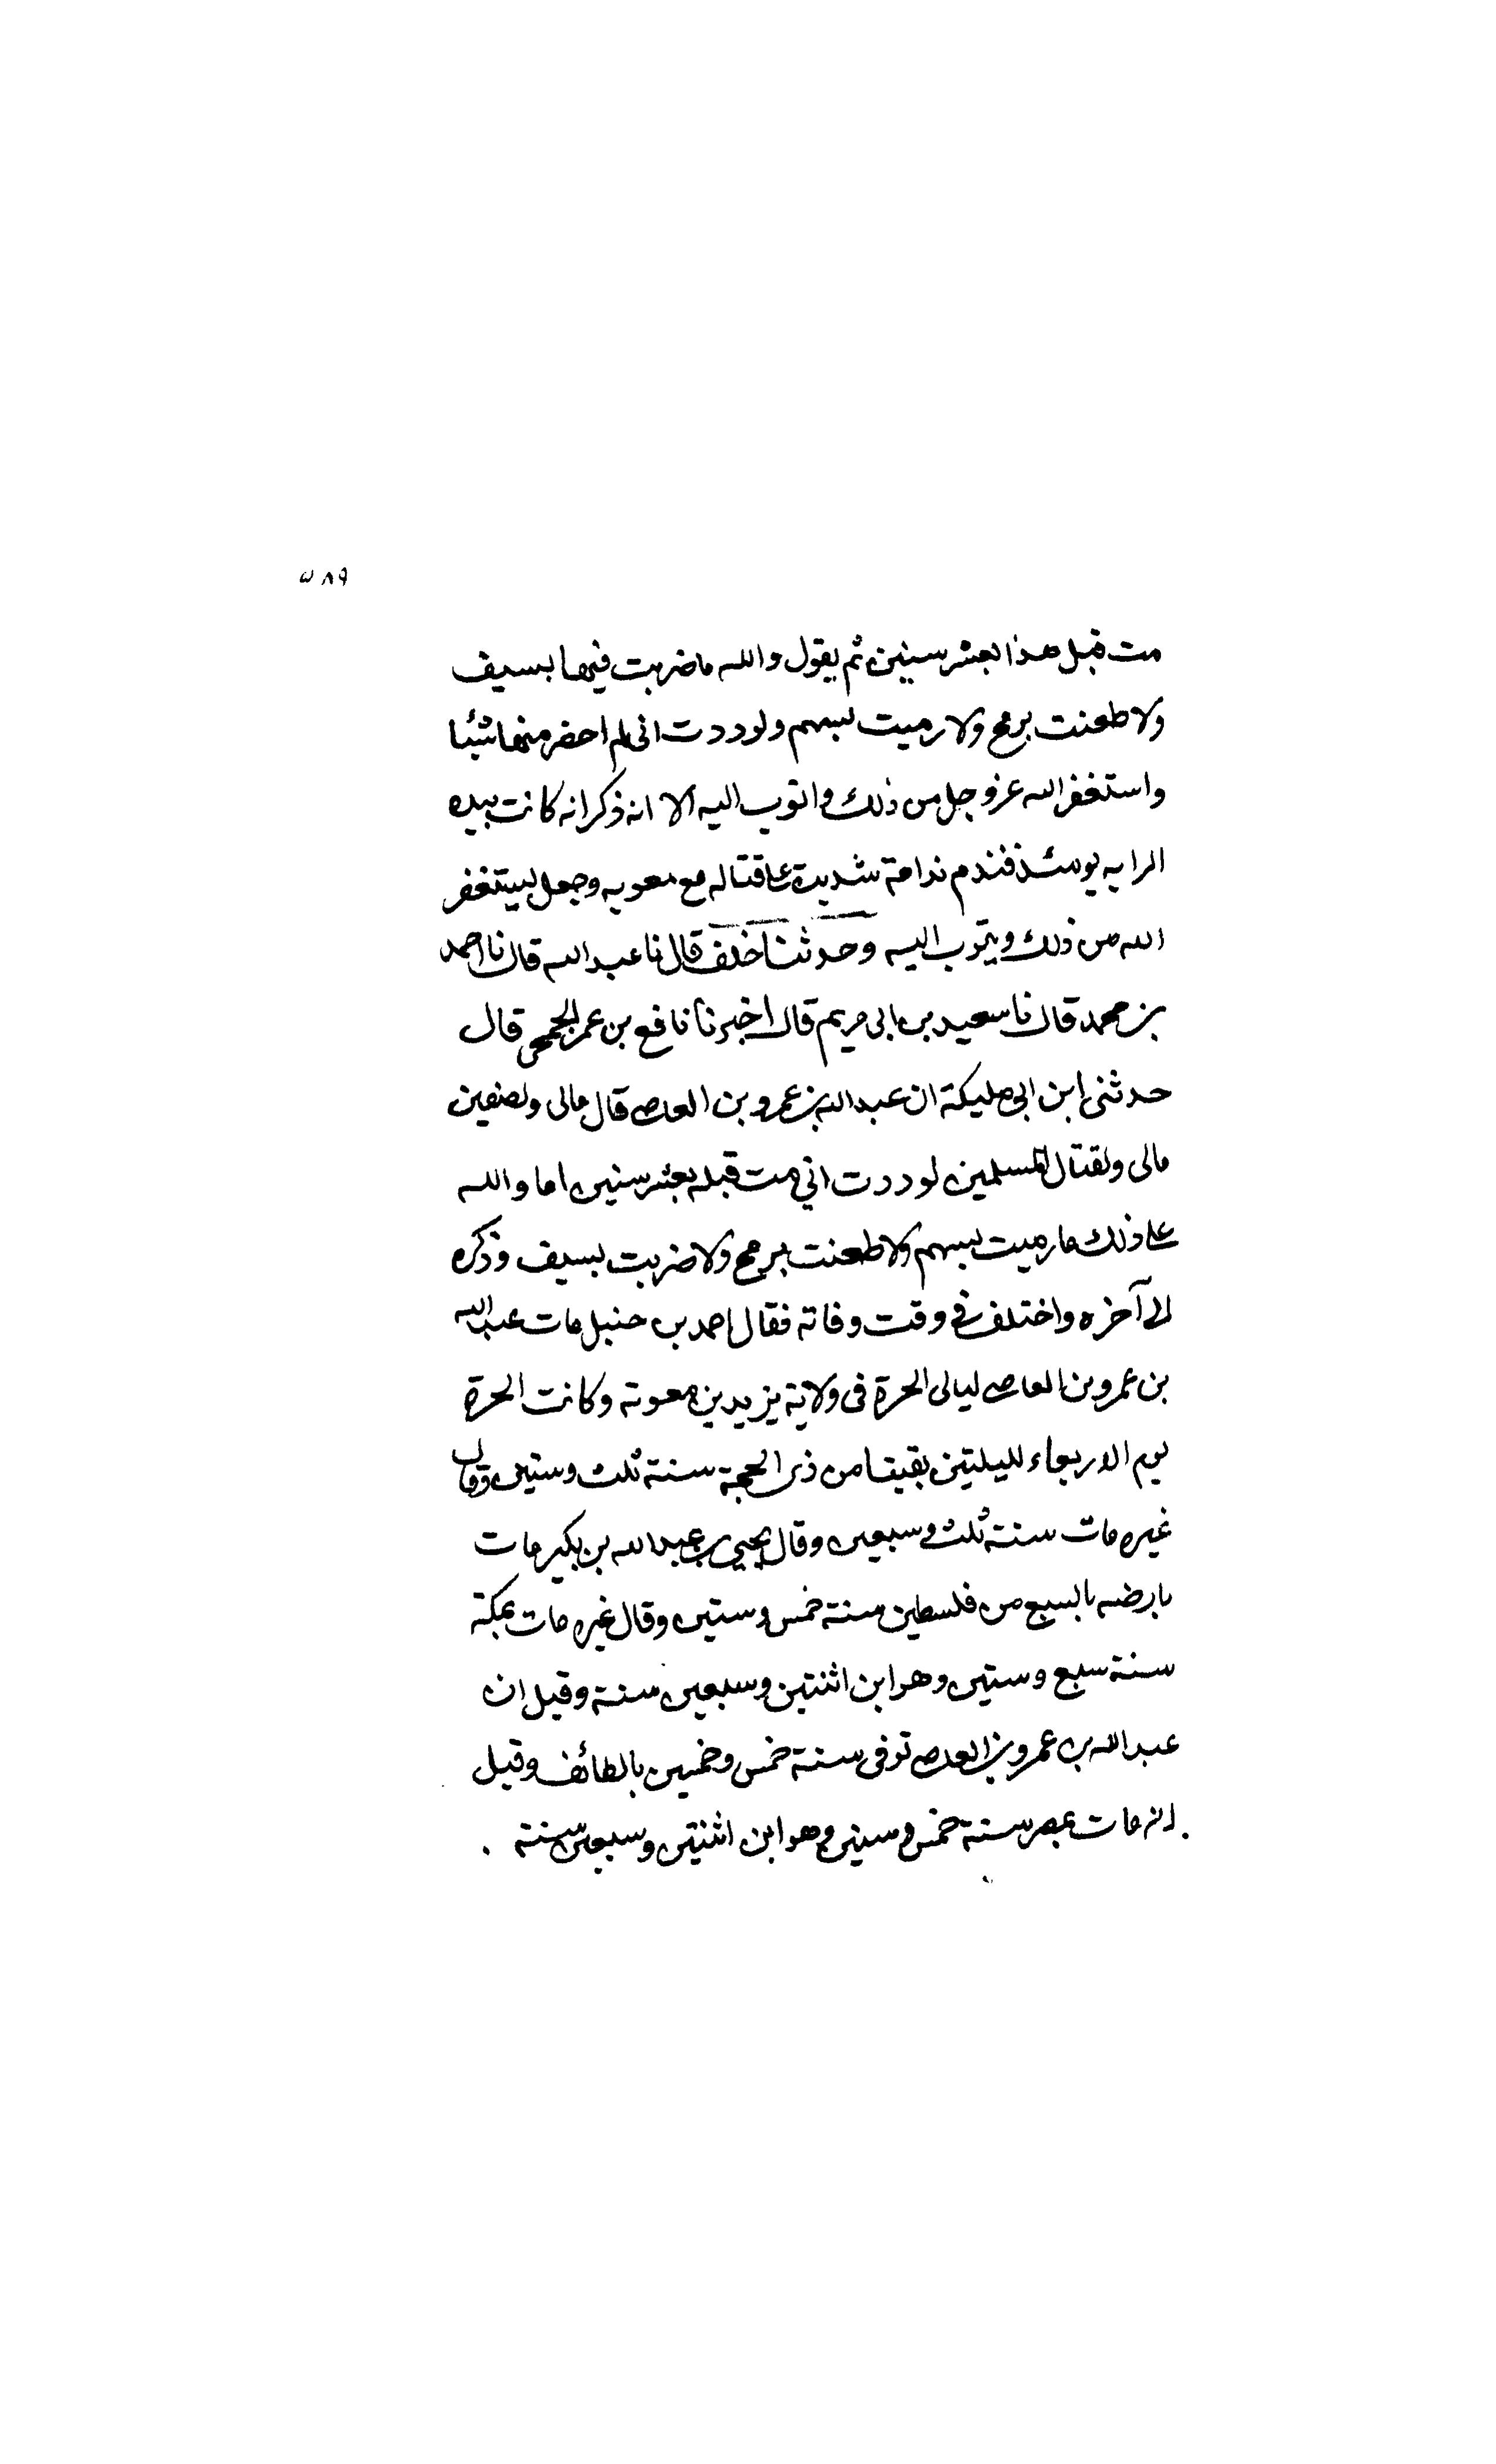 ٥٨٩
مت قبل هذا بعشر سنين ثم يقول والله ما ضربت فيها بسيف
ولا طعنت برمح ولا رميت بسهم ولوددت اني لم احضر منها شيئا
واستغفر الله عز وجل من ذلك واتوب اليه الا انه ذكر انه كانت بيده
الرايه يومئذ فندم ندامة شديدة على قتاله مع معويه وجعل يستغفر
الله من ذلك ويتوب اليه وحدثنا خلف قال نا عبد الله قال نا احمد
بن محمد قال نا سعيد بن ابى مريم قال اخبرنا نافع بن عمر الجمحى قال
حدثنى ابن ابى مليكة ان عبد الله بن عمرو بن العاصى قال مالى ولصفين
مالى ولقتال المسلمين لوددت اني مت قبله بعشر سنين اما والله
على ذلك ما رميت بسهم ولا طعنت برمح ولا ضربت بسيف وذكره
الى آخره واختلف في وقت وفاته فقال احمد بن حنبل مات عبد الله
بن عمرو بن العاصى ليالى الحرة فى ولاية يزيد بن معوية وكانت الحرة
يوم الاربعاء لليلتين بقيتا من ذى الحجة سنة ثلث وستين وقال
غيره مات سنة ثلث وسبعين وقال يحيى بن عبد الله بن بكير مات
بارضه بالسبع من فلسطين سنة خمس وستين وقال غيره مات بمكة
سنة سبع وستين وهو ابن اثنتين وسبعين سنة وقيل ان
عبد الله بن عمرو بن العاصى توفى سنة خمس وخمسين بالطائف وقيل
انه مات بمصر سنة خمس وستين وهو ابن اثنتين وسبعين سنة .